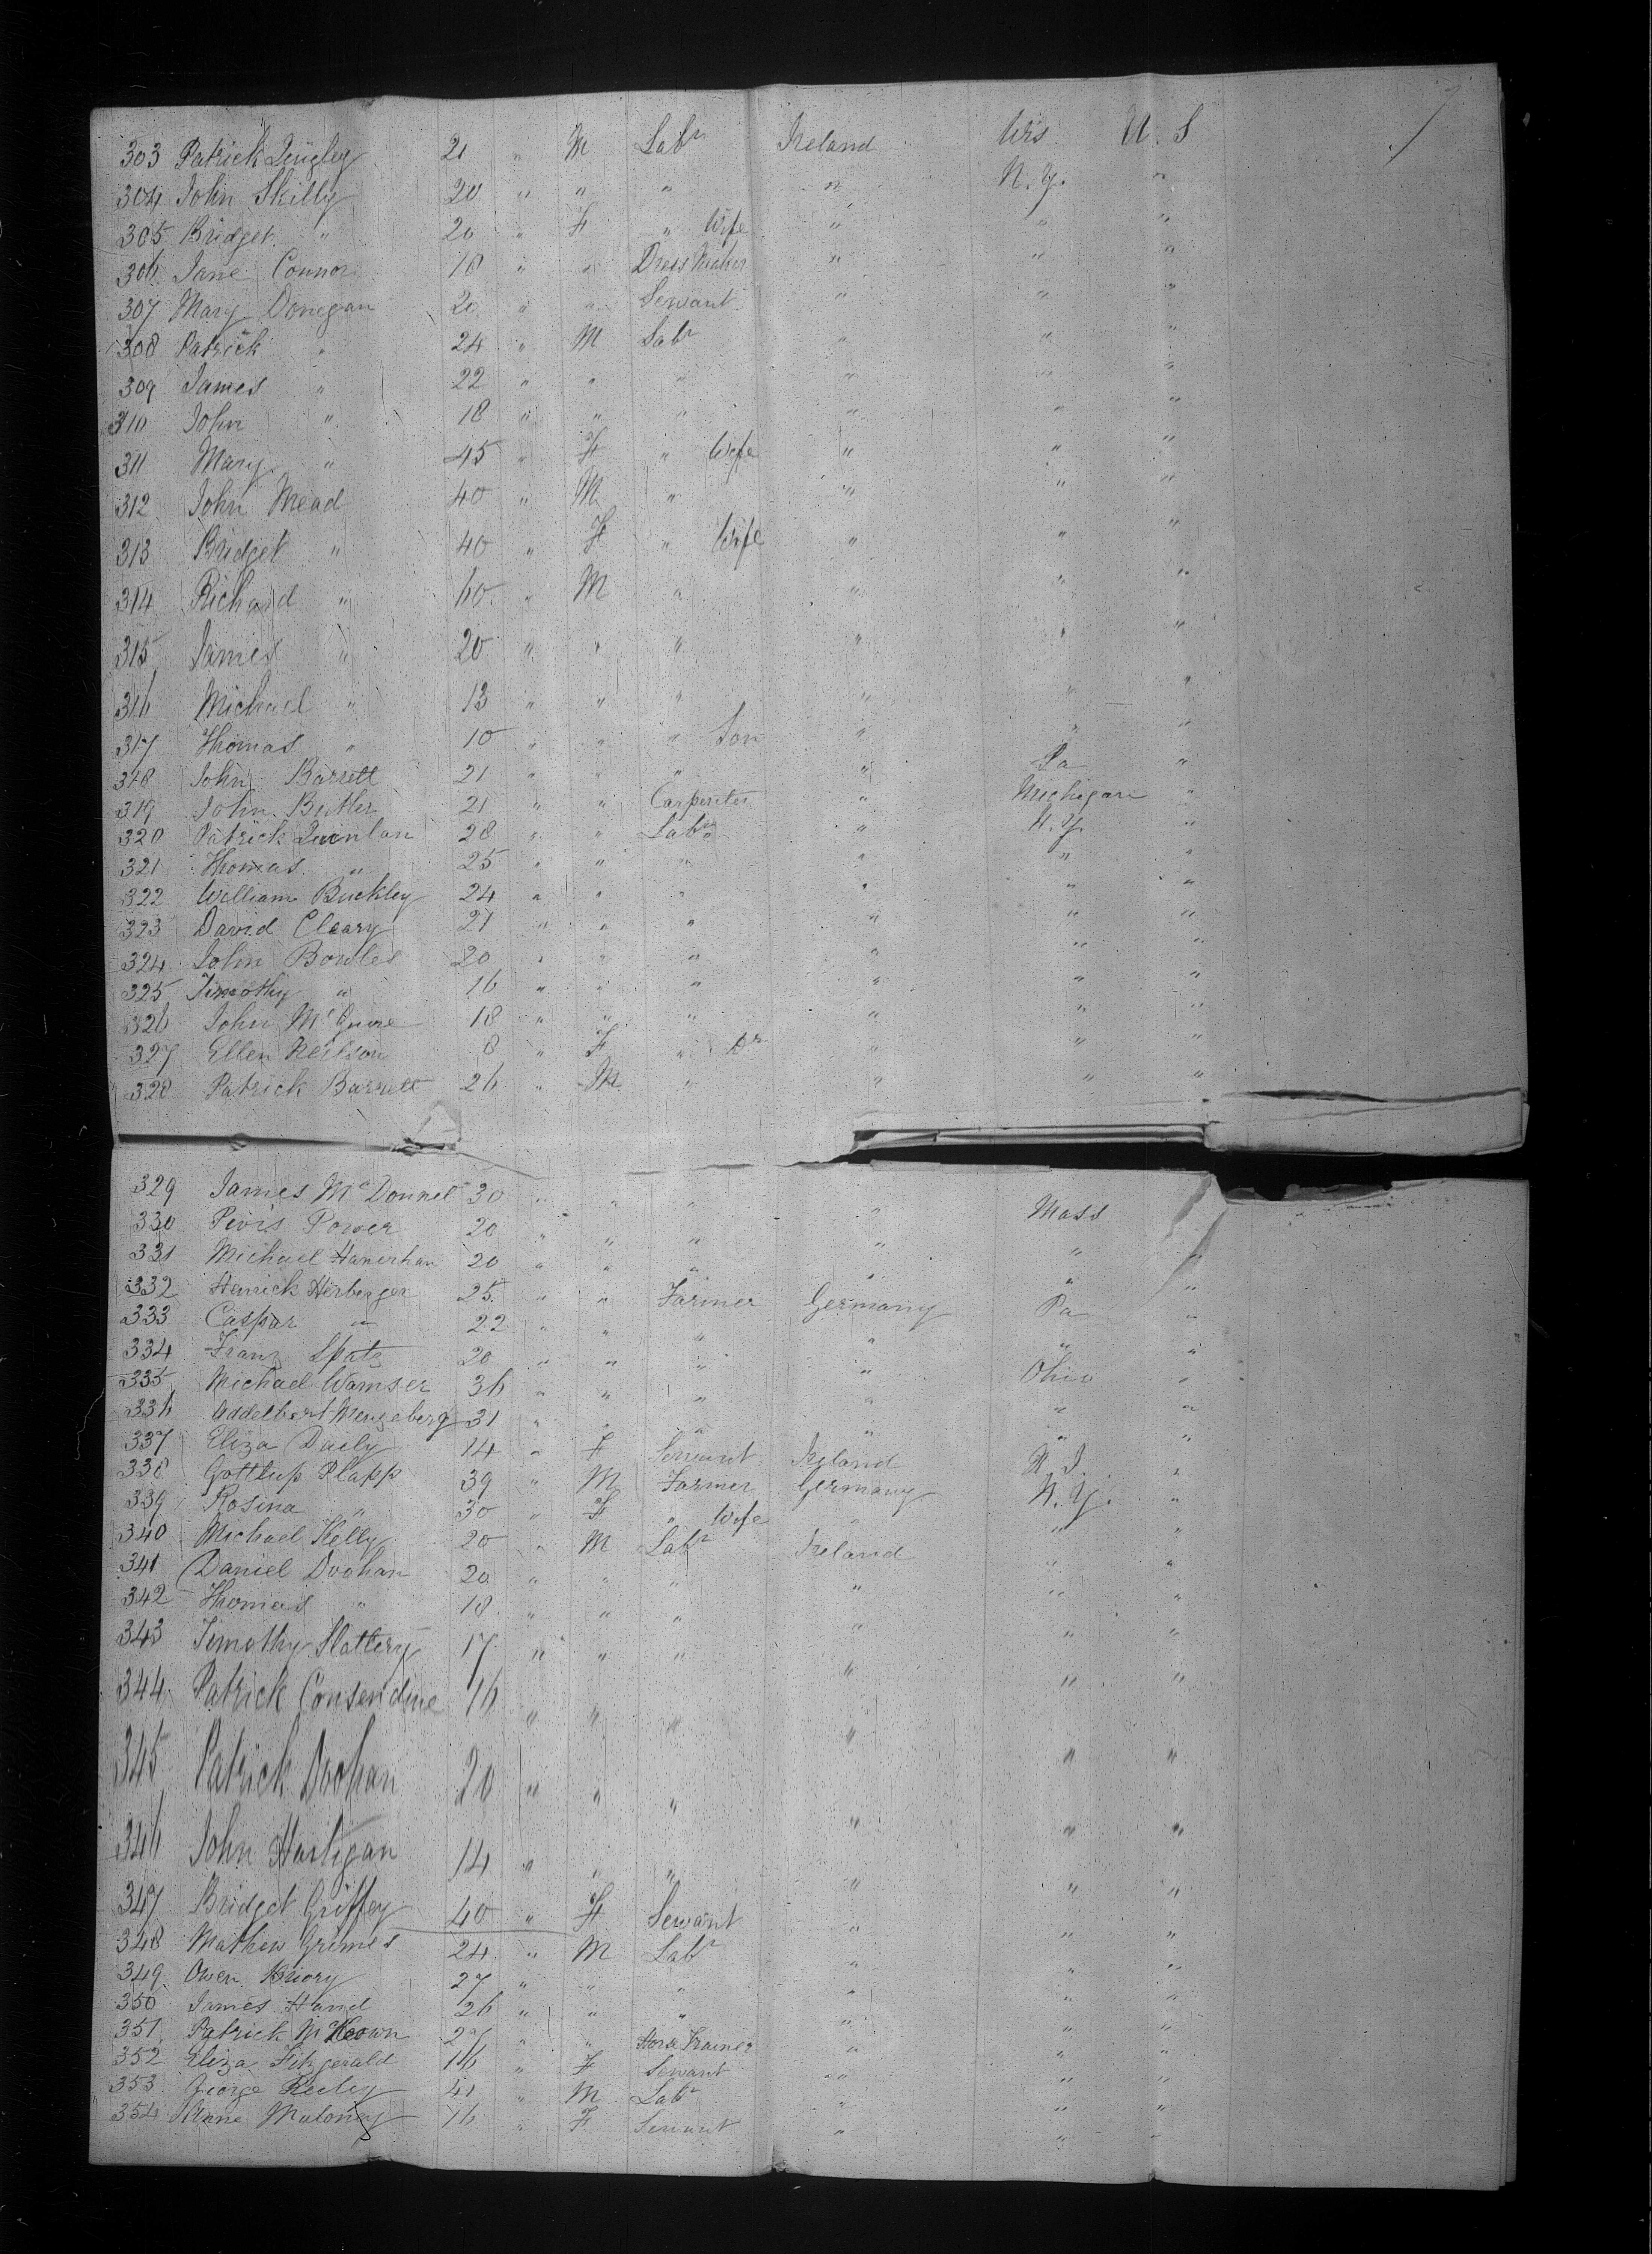 7
303 Patrick Quigley 21 " M Labr Ireland Wis U. S
304 John Skilly 20 " " " " N. Y. "
305 Bridget " 20 " F " Wife " " "
306 Jane Connor 18 " " Dress Maker " " "
307 Mary Donegan 20 " " Servant " " "
308 Patrick " 24 " M Labr " " "
309 James " 22 " " " " " "
310 John " 18 " " " " " "
311 Mary " 45 " F " Wife " " "
312 John Mead 40 " M " " " "
313 Bridget " 40 " F " Wife " " "
314 Richard " 60 " M " " " "
315 James " 20 " " " " " "
316 Michael " 13 " " " " " "
317 Thomas " 10 " " " Son " " "
318 John Barrett 21 " " " " Pa "
319 John Butler 21 " " Carpenter " Michigan "
320 Patrick Quinlan 28 " " Labr " N. Y. "
321 Thomas " 25 " " " " " "
322 William Buckley 24 " " " " " "
323 David Cleary 21 " " " " " "
324 John Bowles 20 " " " " " "
325 Timothy " 16 " " " " " "
326 John McGuire 18 " " " " " "
327 Ellen Neilson 8 " F " Dr " " "
328 Patrick Barrett 26 " M " " " "
329 James McDonnel 30 " " " " Mass
330 Power 20 " " " " " "
331 Michael Hanerhan 20 " " " " " "
332 Henrick Herberger 25 " " Farmer Germany Pa "
333 Caspar " 22 " " " " " "
334 Franz Spatz 20 " " " " Ohio "
335 Michael Wamser 36 " " " " " "
336 Addelbert Menzeberg 31 " " " " " "
337 Eliza Daily 14 " F Servant Ireland R. I. "
338 Gottlup Plapp 39 " M Farmer Germany N. Y. "
339 Rosina " 30 " F " Wife " " "
340 Michael Kelly 20 " M Labr Ireland " "
341 Daniel Doohan 20 " " " " " "
342 Thomas " 18 " " " " " "
343 Timothy Slattery 17 " " " " " "
344 Patrick Consendine 16 " " " " " "
345 Patrick Doohan 20 " " " " " "
346 John Hartigan 14 " " " " " "
347 Bridget Griffey 40 " F Servant " " "
348 Mathew Grimes 24 " M Labr " " "
349 Owen 27 " " " " " "
350 James Hand 26 " " " " " "
351 Patrick McKeown 27 " " Horse Trainer " " "
352 Eliza Fitzgerald 16 " F Servant " " "
353 George Reeley 41 " M Labr " " "
354 Anne Maloney 16 " F Servant " " "